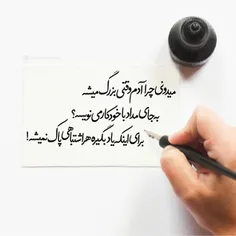 میدونی چرا آدم وقتی بزرگ میشه
به جای مداد با خودکار می نویسه؟
برای اینکه یاد بگیره هر اشتباهی پاک نمیشه!